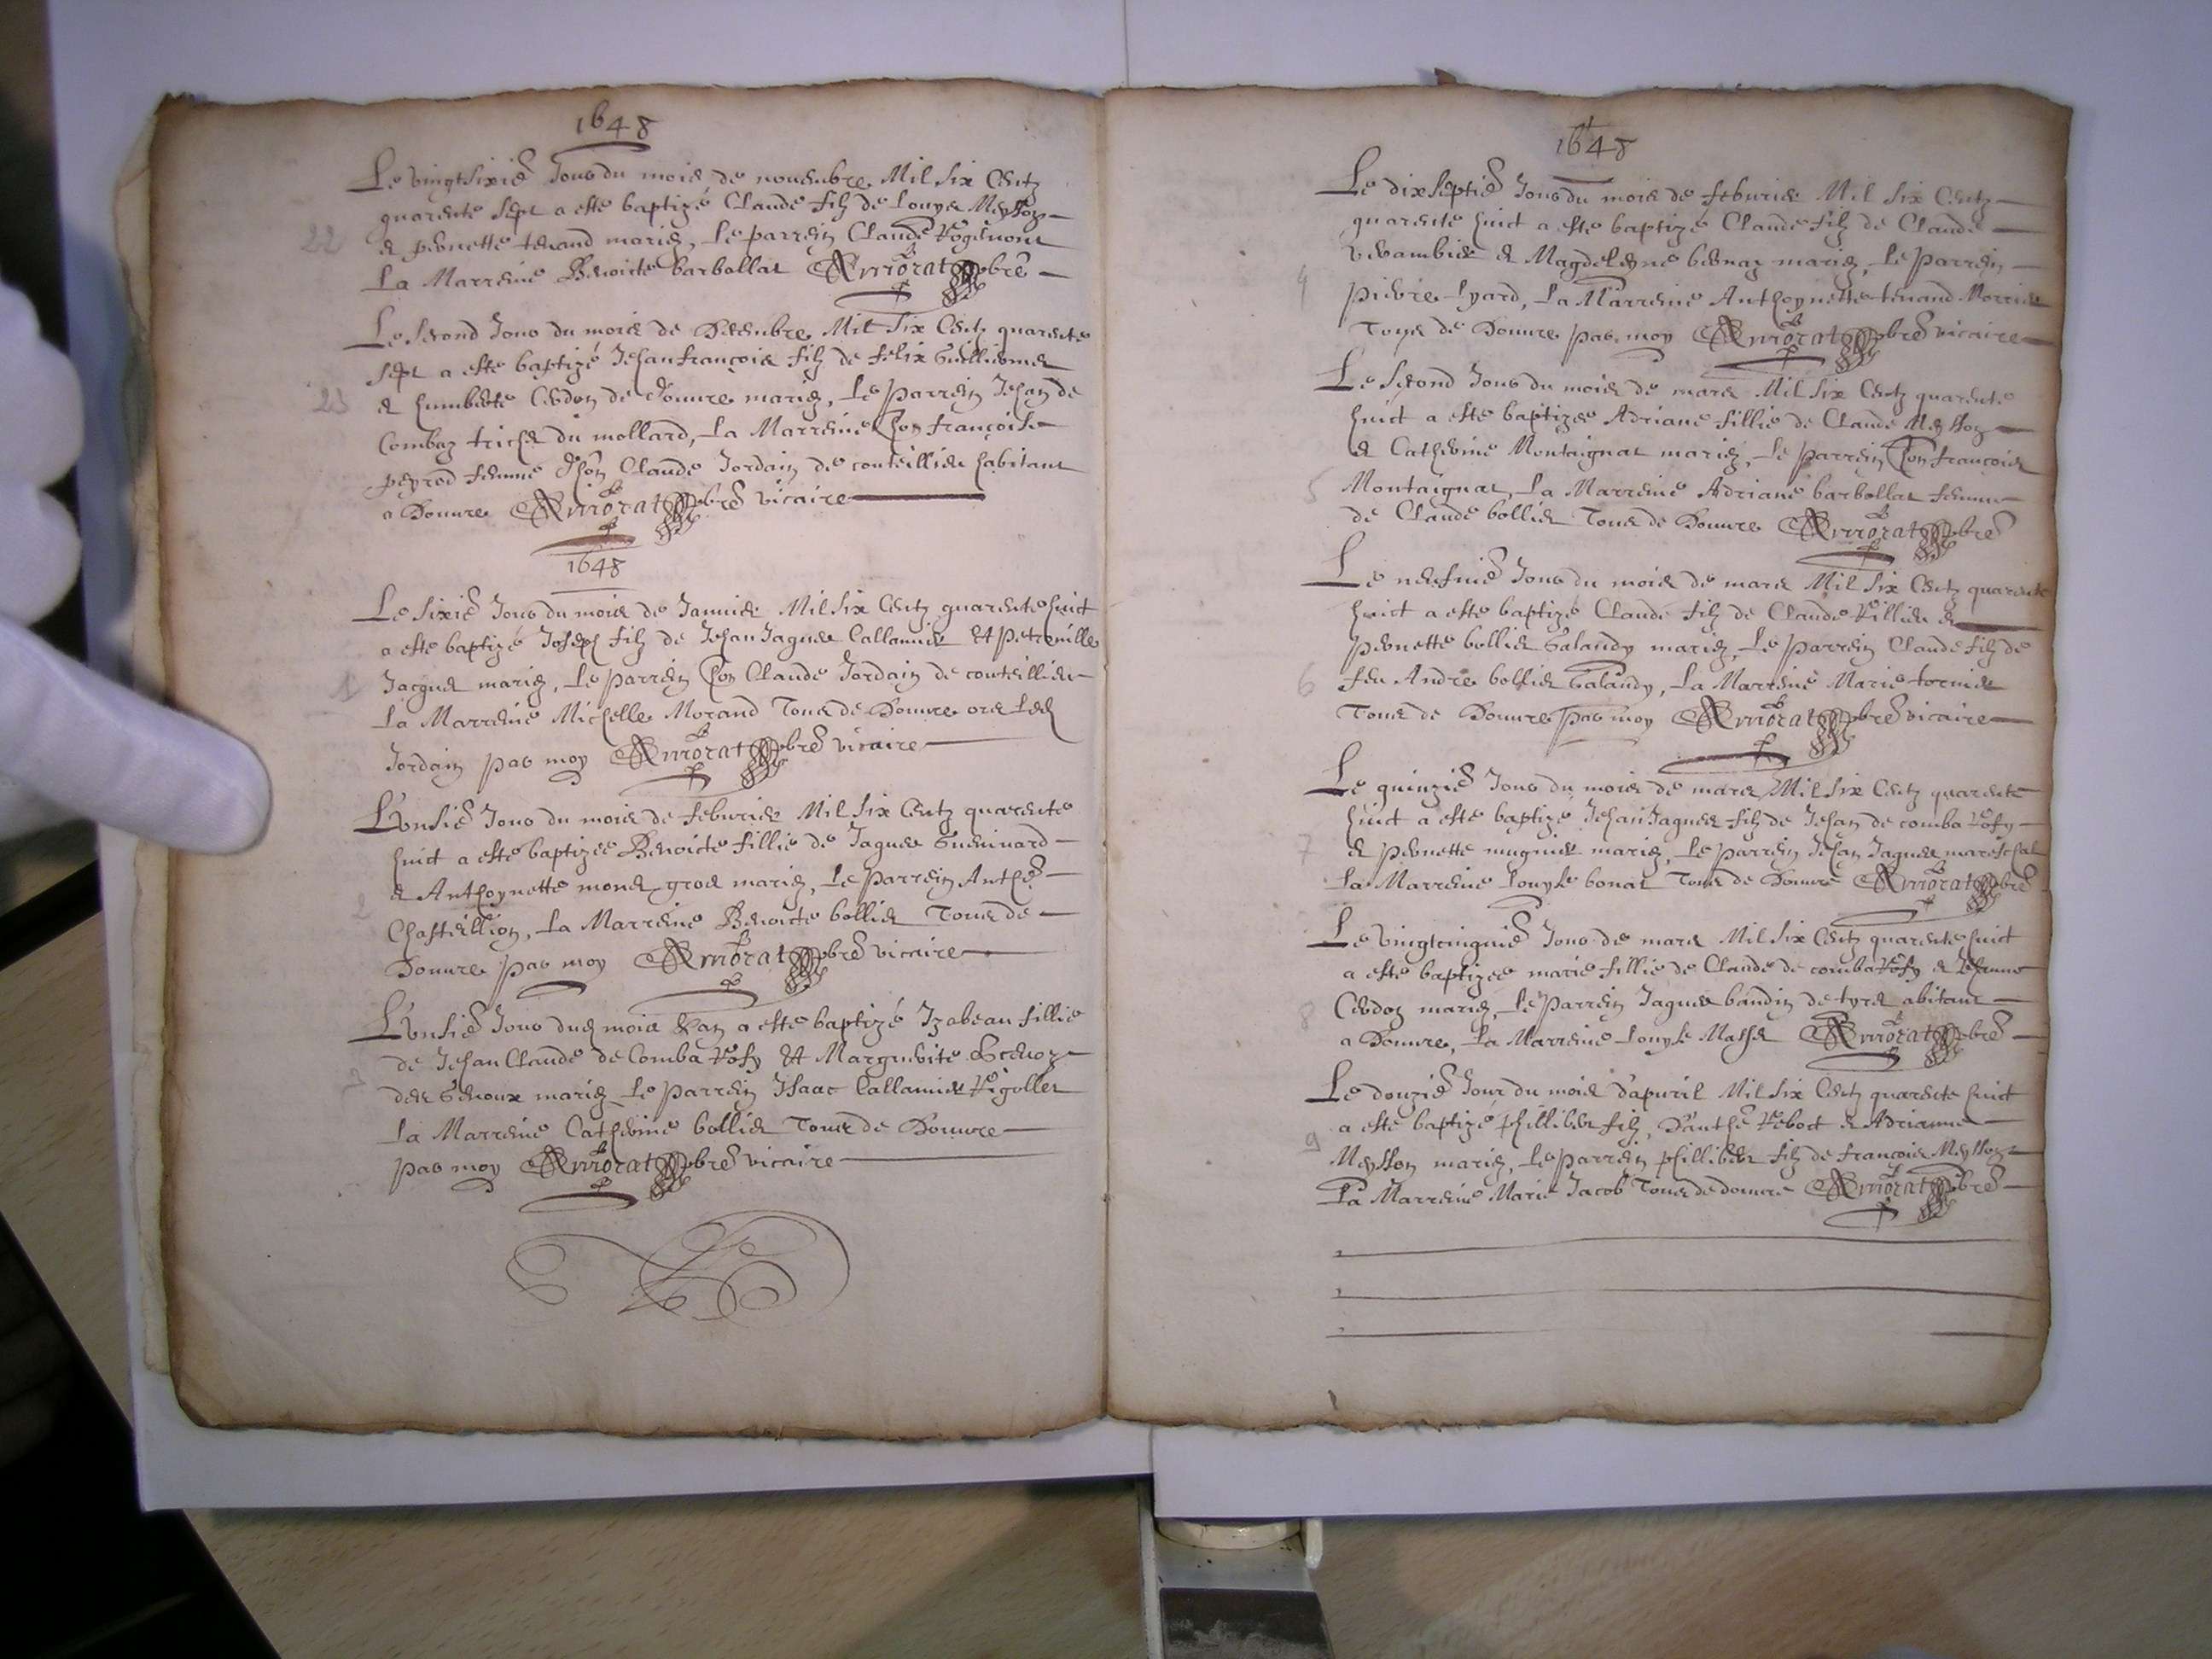 1648
Le vingtsixie Jour du mois de nouembre Mil Six Centz
quarente sept a este baptizé Claude filz de Louys Meysson
22 & pernette tenand mariez, Le parrein Claude
La Marreine Benoicte barbollat pbre
Le Second Jour du mois de Decembre Mil Six Centz quarente
sept a este baptizé Jehan françois filz de felix Guilliermet
23 & humberte Cerdon de Douure mariez, Le parrein Jehan de
Combaz du mollard, La Marreine hon françoise
peyrod femme d'hon Claude Jordain de conteillieu habitant
a Douure pbre vicaire
1648
Le Sixie Jour du mois de Januier Mil Six Centz quarente huict
a este baptizé Joseph filz de Jehan Jaques Callamier Et petronille
1 Jacques mariez, Le parrein hon Claude Jordain de conteillieu
La Marreine Michelle Morand Tous de Douure
Jordain par moy pbre vicaire
L'onsie Jour du mois de feburier Mil Six Centz quarente
huict a este baptizée Benoicte fillie de Jaques Gueninard
& Anthoynette gros mariez, Le parrein Anthe
2 Chastillion, La Marreine Benoicte bollier Tous de
Douure par moy pbre vicaire
L'onsie Jour dud mois & an a este baptizé Izabeau fillie
de Jehan Claude de Comba Et Marguerite
3 des Genoux mariez Le parrein Isaac Callamier Rigollet
La Marreine Catherine bollier Tous de Douure
par moy pbre vicaire
1648
Le dixseptie Jour du mois de feburier Mil Six Centz
quarente huict a este baptizé Claude filz de Claude
& Magdeleyne bernaz mariez, Le parrein
4 pierre Lyard, La Marreine Anthoynette tenand
Tous de Douure par moy pbre vicaire
Le Second Jour du mois de mars Mil Six Centz quarente
huict a este baptizée Adriane fillie de Claude Meysson
& Catherine Montaignat mariez, Le parrein hon françois
5 Montaignat, La Marreine Adriane barbollat femme
de Claude bollier Tous de Douure pbre
Le neufuie Jour du mois de mars Mil Six Centz quarente
huict a este baptizé Claude filz de Claude &
pernette bollier Galandy mariez, Le parrein Claude filz de
6 feu Andre bollier Galandy, La Marreine Marie tornier
Tous de Douure par moy pbre vicaire
Le quinzie Jour du mois de mars Mil Six Centz quarente
huict a este baptizé Jehan Jaques filz de Jehan de comba
7 & pernette mugnier mariez, Le parrein Jehan Jaques mareschal
La Marreine Louyse bonat Tous de Douure pbre
Le vingtcinquie Jour de mars Mil Six Centz quarente huict
a este baptizée marie fillie de Claude de comba & Jehanne
8 Cerdon mariez, Le parrein Jaques baudin de abitant
a Douure, La Marreine Louyse pbre
Le douzie Jour du mois d'apuril Mil Six Centz quarente huict
a este baptizé phillibert filz d'Anthe & Adrianne
9 Meysson mariez, Le parrein phillibert filz de françois Meysson
La Marreine Marie Jacob Tous de douure pbre